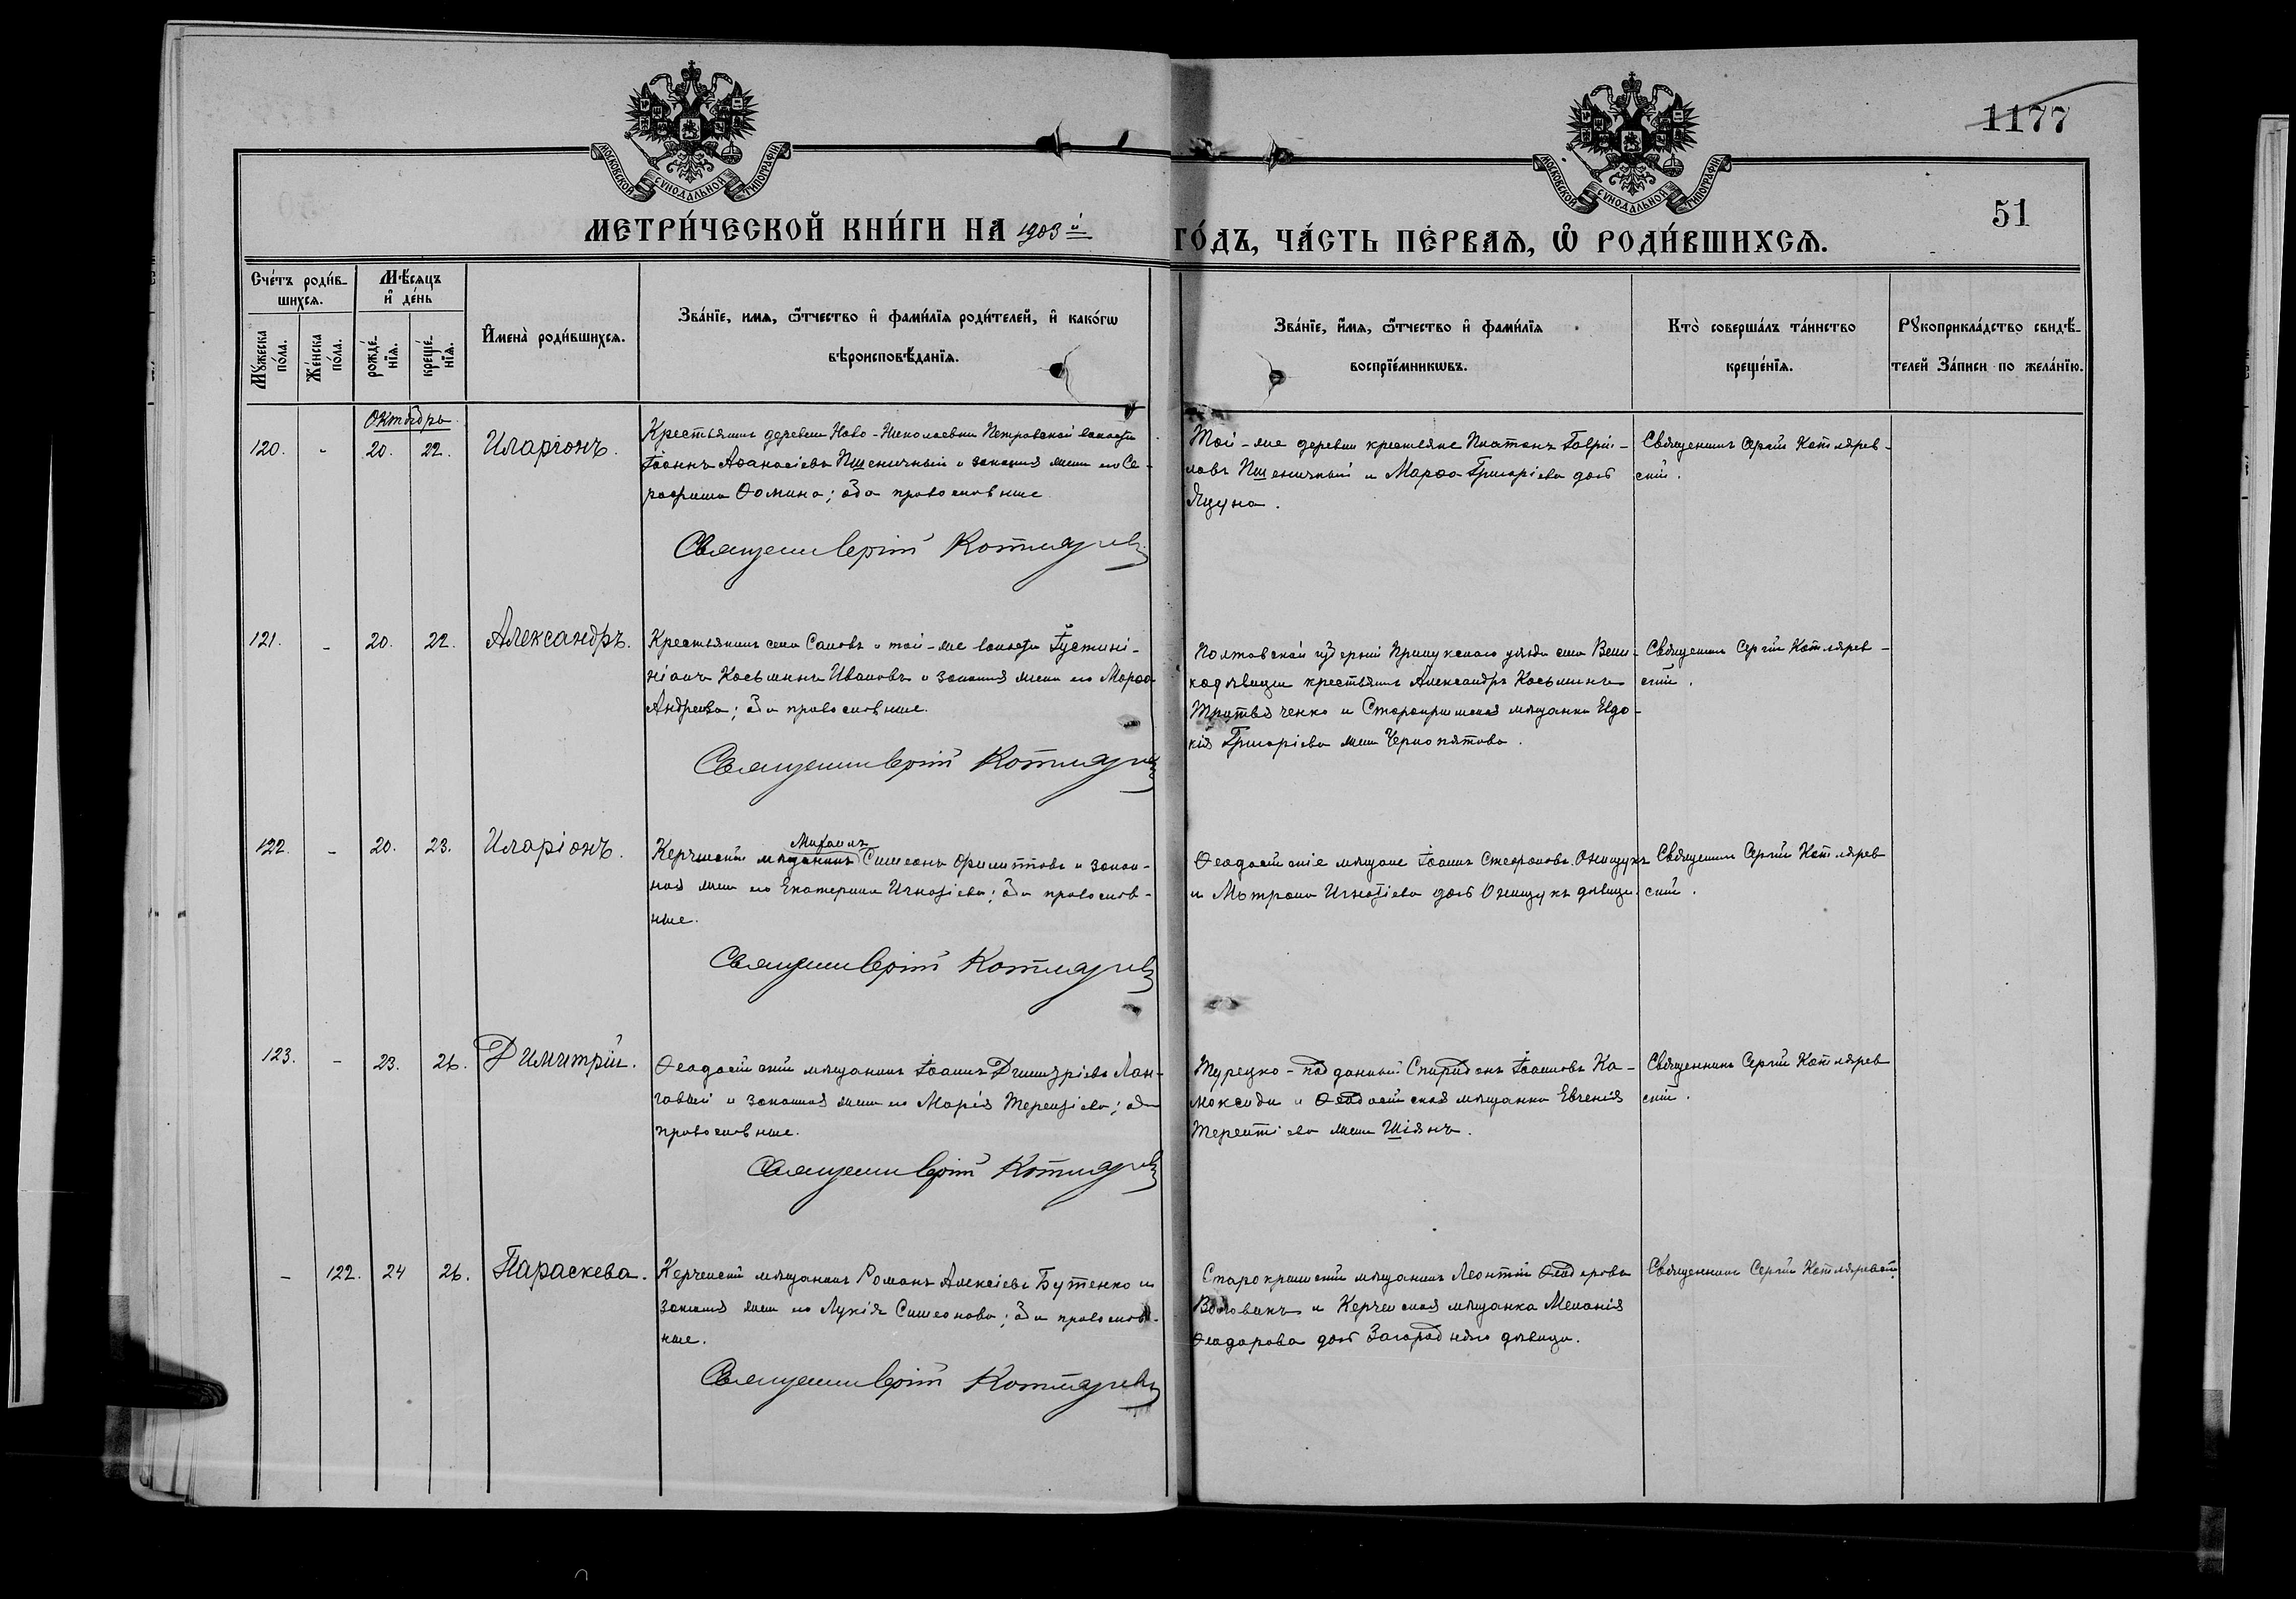 1177
51
МОСКОВСКОЙ СѴНОДАЛЬНОЙ ТИПОГРАФІИ
МОСКОВСКОЙ СѴНОДАЛЬНОЙ ТИПОГРАФІИ
МЕТРИ́ЧЕСКОЙ КНИ́ГИ НА 1903й
ГО́ДЪ, ЧА́СТЬ ПЕ́РВАѦ, Ѡ҆ РОДИ́ВШИХСѦ.
Сче́тъ роди́в-
шихсѧ.
Мѣ́сѧцъ
и҆ де́нь
Мꙋ́жеска
по́ла.
Же́нска
по́ла.
рожде́-
нїѧ.
креще́-
нїѧ.
И҆мена̀ роди́вшихсѧ.
Зва́нїе, имѧ, ѻ҆́тчество и҆ фами́лїѧ роди́телей, и҆ како́гѡ
вѣроисповѣ́данїѧ.
Зва́нїе, и҆́мѧ, ѻ҆́тчество и҆ фами́лїѧ
воспрїе́мникѡвъ.
Кто̀ соверша́лъ та́инство
креще́нїѧ.
Рꙋкоприкла́дство свидѣ́-
телей За́писи по жела́нїю.
Октябрь
120. - 20. 22. Иларіонъ.
Крестьянинъ деревни Ново-Николаевки Петровской волости
Іоаннъ Аѳанасіевъ Пшеничный и законная жена его Се-
рафима Ѳомина; оба православные
Священникъ Сергій Котляревс
Той-же деревни крестьяне Платонъ Гаврі-
ловъ Пшеничный и Марѳа Григоріева дочь
Яцуна.
Священникъ Сергій Котлярев-
скій.
121. - 20. 22. Александръ.
Крестьянинъ села Саловъ и той-же волости Іустині-
ніанъ Косьминъ Ивановъ и законная жена его Марѳа
Андреева; оба православные.
Священникъ Сергій Котляревс
Полтавской губерніи Прилукскаго уѣзда села Вели-
кодѣвицы крестьянинъ Александръ Косьминъ
ченко и Старокрымская мѣщанка Евдо-
кія Григоріева жена Чернопятова.
Священникъ Сергій Котлярев-
скій.
122. - 20. 23. Иларіонъ.
Михаилъ
Керченскій мѣщанинъ Симеонъ Филипповъ и закон-
ная жена его Екатерина Игнатіева; оба православ-
ные.
Священникъ Сергій Котляревс
Ѳеодосійскіе мѣщане Іоаннъ Стефановъ Онищукъ
и Матрона Игнатіева дочь Онищукъ дѣвица.
Священникъ Сергій Котлярев
скій.
123. - 23. 26. Димитрій.
Ѳеодосійскій мѣщанинъ Іоаннъ Димитріевъ Лан-
говый и законная жена его Марія Терентіева; оба
православные.
Священникъ Сергій Котляревс
Турецко-подданный Спиридонъ Іоанновъ Ка-
локсиди и Ѳеодосійская мѣщанка Евгенія
Терентіева жена Шіянъ.
Священникъ Сергій Котлярев
скій.
- 122. 24 26. Параскева.
Керченскій мѣщанинъ Романъ Алексіевъ Бутенко и
законная жена его Лукія Симеонова; оба православ-
ные.
Священникъ Сергій Котляревс
Старокрымскій мѣщанинъ Леонтій Ѳеодоровъ
Воловикъ и Керченская мѣщанка Меланія
Ѳеодорова дочь Загородняго дѣвица.
Священникъ Сергій Котляревскій.